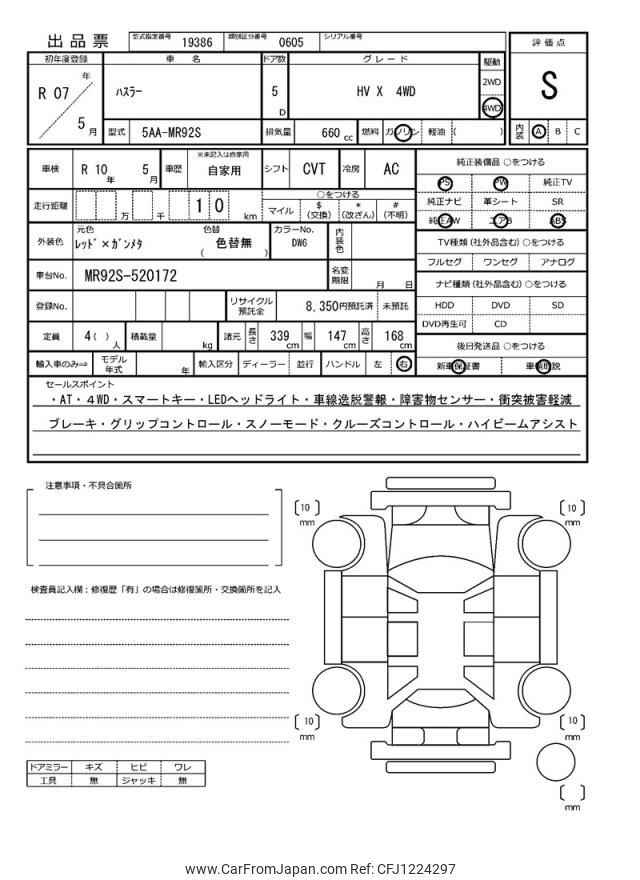 出品票 型式指定番号 19386 類別区分番号 0605 シリアル番号
評価点
S
内装 A B C
初年度登録 車名 ドア数 グレード 駆動
R 07 年 5 月 ハスラー 5 D HV X 4WD 2WD 4WD
型式 5AA-MR92S 排気量 660 cc 燃料 ガソリン 軽油 ( )
車検 R 10 年 5 月 車歴 ※未記入は自家用 自家用 シフト CVT 冷房 AC
走行距離 万 千 1 0 km ○をつける
マイル $(交換) *(改ざん) #(不明)
外装色 元色 レッド×ガンメタ 色替 ( 色替無 ) カラーNo. DW6 内装色
車台No. MR92S-520172 名変期限 月 日
登録No. リサイクル預託金 8,350円預託済 未預託
定員 4( ) 人 積載量 kg 諸元 長さ 339 cm 幅 147 cm 高さ 168 cm
輸入車のみ⇒ モデル年式 年 輸入区分 ディーラー 並行 ハンドル 左 右
純正装備品 ○をつける
PS PW 純正TV
純正ナビ 革シート SR
純正AW エアB ABS
TV種類(社外品含む)○をつける
フルセグ ワンセグ アナログ
ナビ種類(社外品含む)○をつける
HDD DVD SD
DVD再生可 CD
後日発送品 ○をつける
新車保証書 車輌取説
セールスポイント
・AT・4WD・スマートキー・LEDヘッドライト・車線逸脱警報・障害物センサー・衝突被害軽減
ブレーキ・グリップコントロール・スノーモード・クルーズコントロール・ハイビームアシスト
注意事項・不具合箇所
検査員記入欄：修復歴「有」の場合は修復箇所・交換箇所を記入
[10] mm
[10] mm
[10] mm
[10] mm
[ ] mm
ドアミラー キズ ヒビ ワレ
工具 無 ジャッキ 無
www.CarFromJapan.com Ref: CFJ1224297